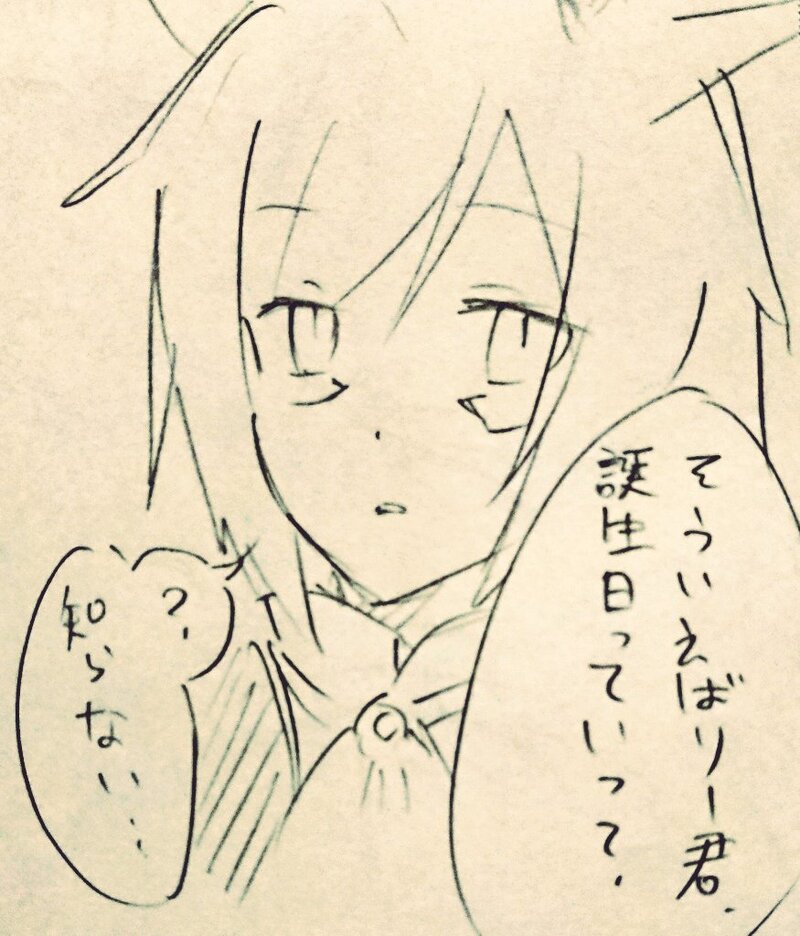 そういえばりー君.
誕生日っていって.
?.
知らない...